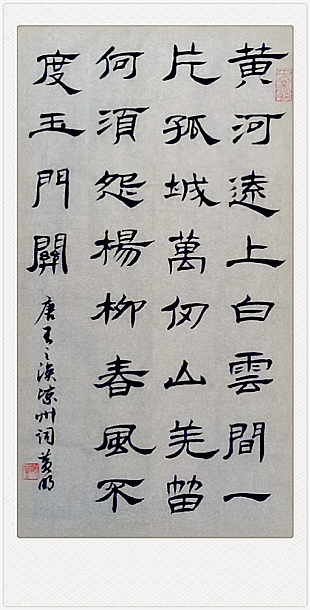 黄河遠上白雲間一
片孤城萬仞山羌笛
何須怨楊柳春風不
度玉門關
唐王之渙涼州词